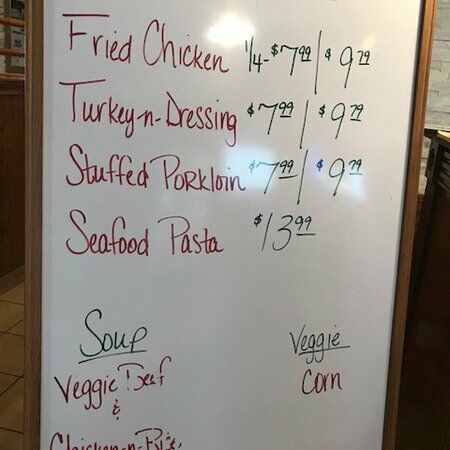 Fried Chicken 1/4-$7.99 | $9.79
Turkey-n-Dressing $7.99 | $9.79
Stuffed Porkloin $7.99 | $9.79
Seafood Pasta $13.99
Soup
Veggie Beef
&
Chicken-n-Rice
Veggie
Corn